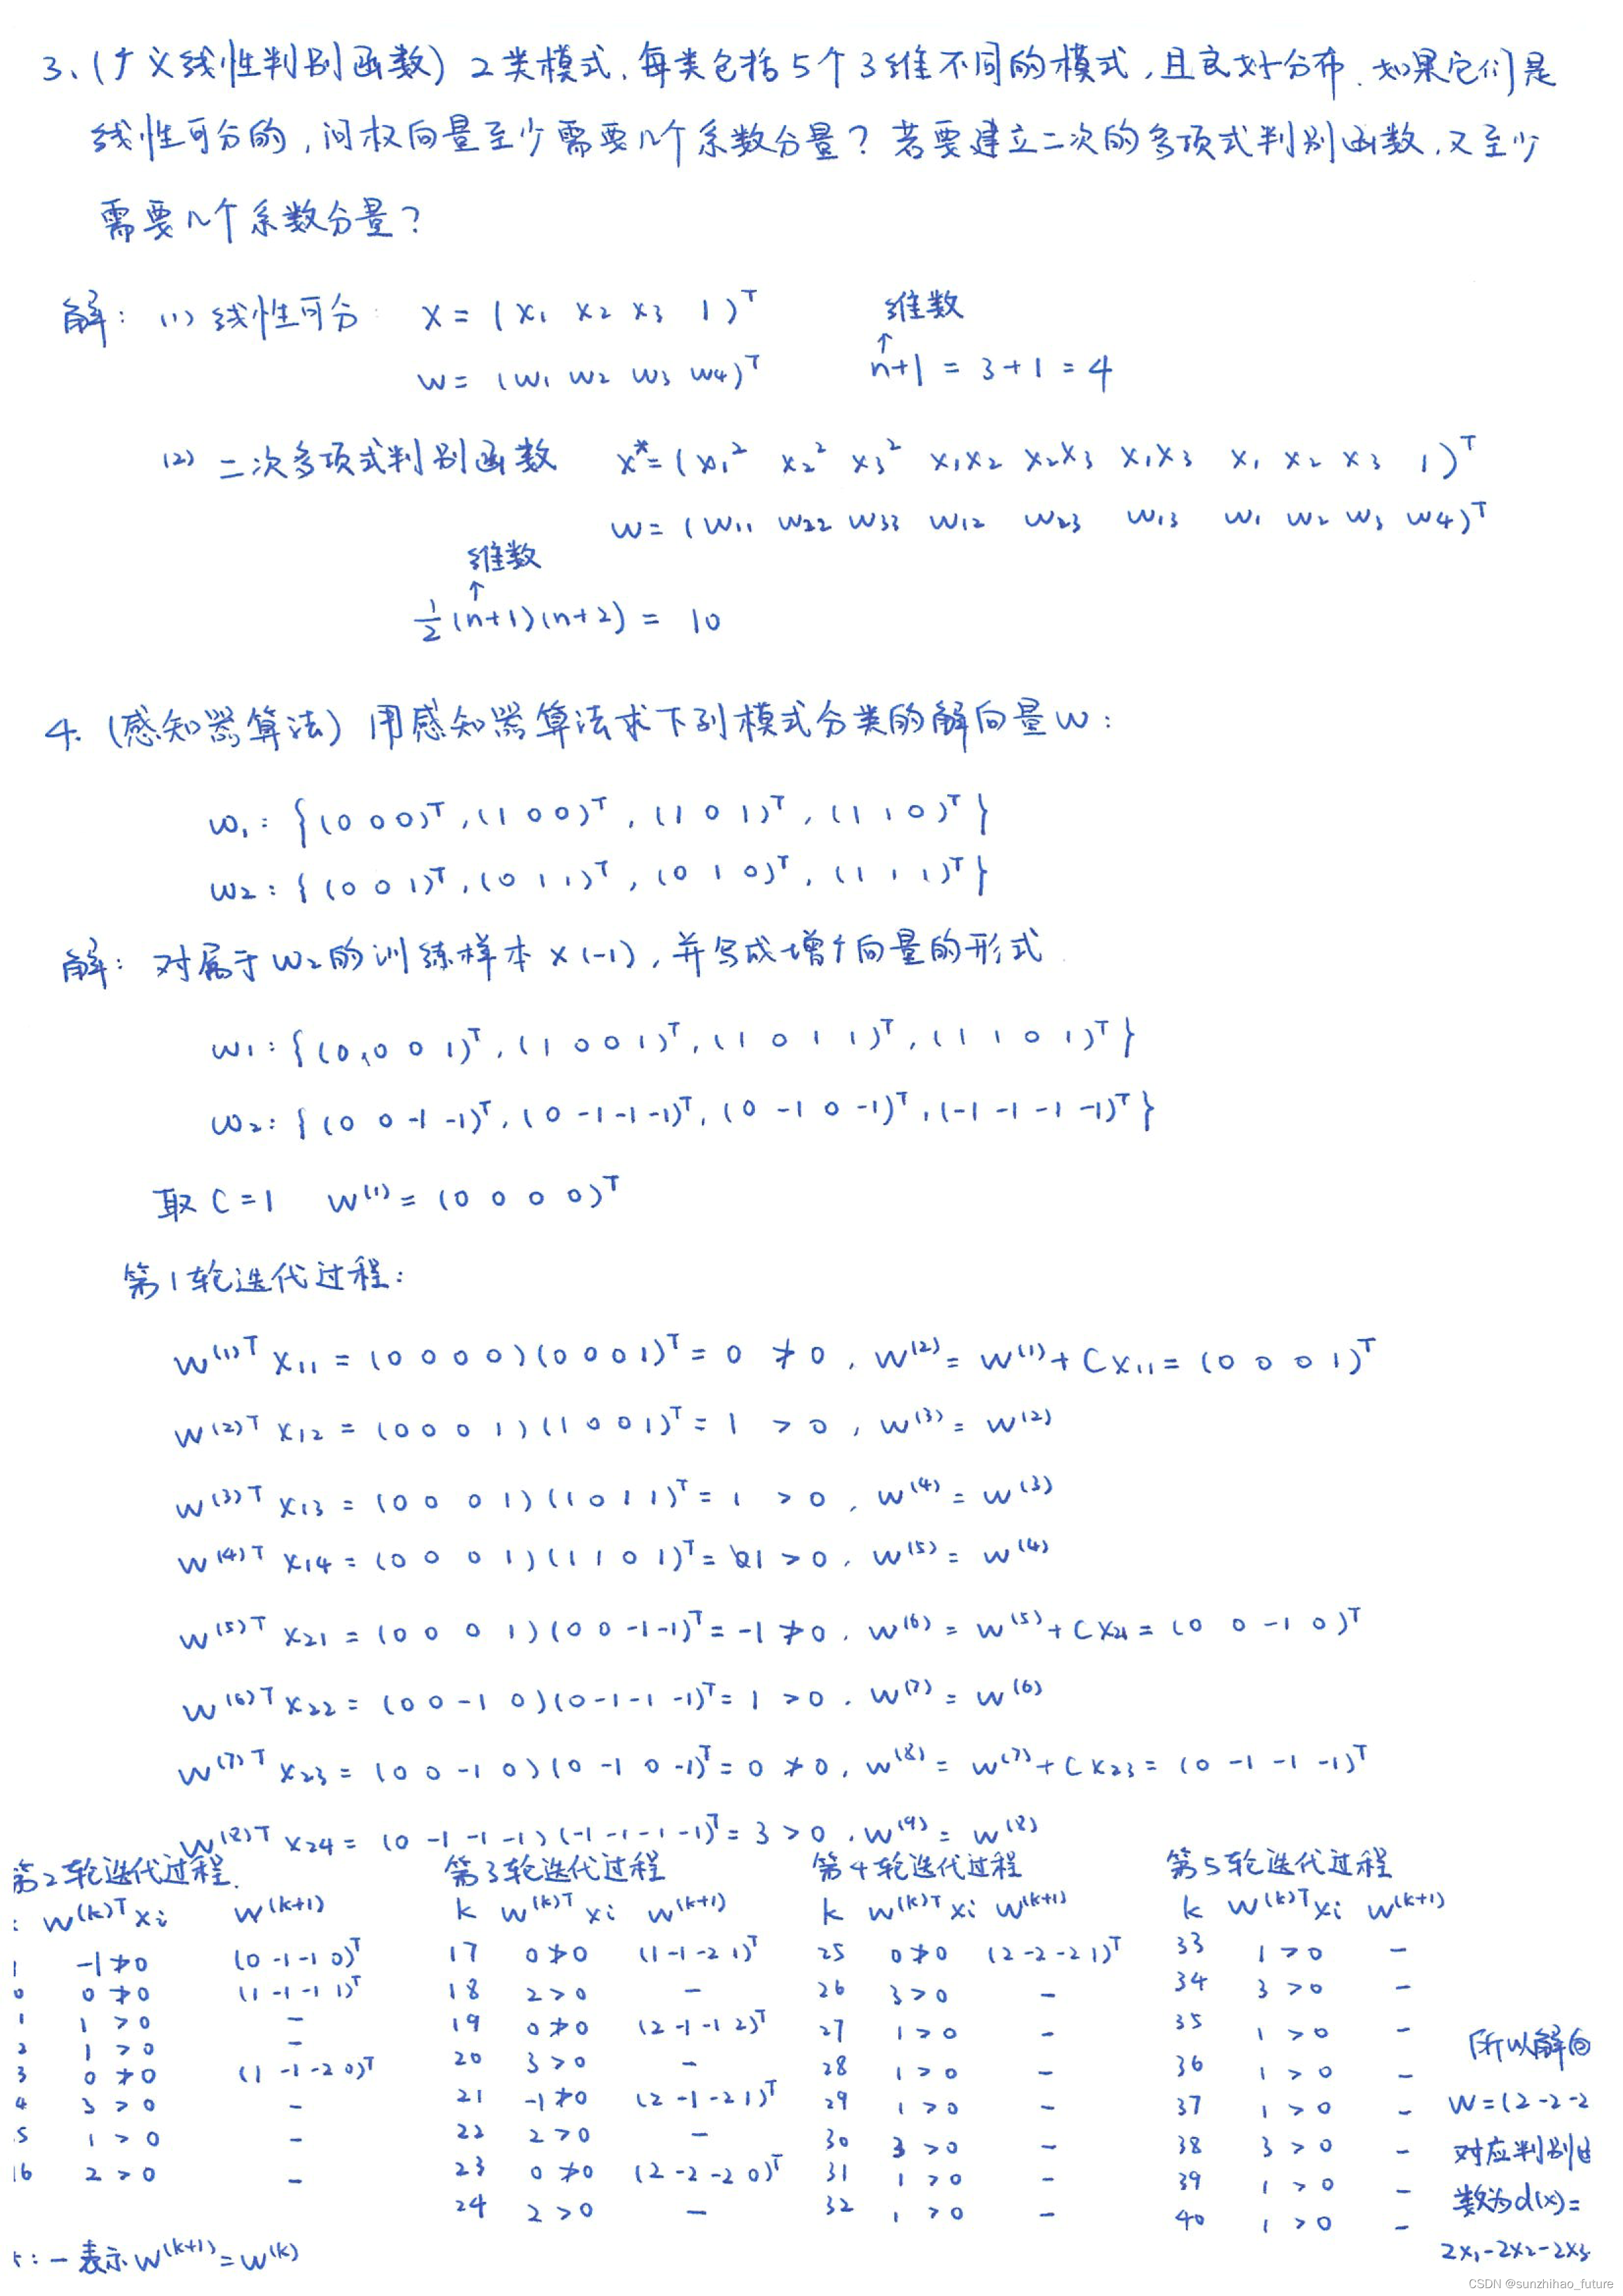 3、(广义线性判别函数) 2类模式,每类包括5个3维不同的模式,且良好分布.如果它们是
线性可分的,问权向量至少需要几个系数分量?若要建立二次的多项式判别函数,又至少
需要几个系数分量?
解: (1) 线性可分: X = (x₁ x₂ x₃ 1)ᵀ 维数
↑
w = (w₁ w₂ w₃ w₄)ᵀ n+1 = 3+1 = 4
(2) 二次多项式判别函数 x* = (x₁² x₂² x₃² x₁x₂ x₂x₃ x₁x₃ x₁ x₂ x₃ 1)ᵀ
w = (w₁₁ w₂₂ w₃₃ w₁₂ w₂₃ w₁₃ w₁ w₂ w₃ w₄)ᵀ
维数
↑
1/2 (n+1)(n+2) = 10
4. (感知器算法) 用感知器算法求下列模式分类的解向量w:
ω₁: {(0 0 0)ᵀ, (1 0 0)ᵀ, (1 0 1)ᵀ, (1 1 0)ᵀ}
ω₂: {(0 0 1)ᵀ, (0 1 1)ᵀ, (0 1 0)ᵀ, (1 1 1)ᵀ}
解: 对属于ω₂的训练样本×(-1),并写成增广向量的形式
ω₁: {(0 0 0 1)ᵀ, (1 0 0 1)ᵀ, (1 0 1 1)ᵀ, (1 1 0 1)ᵀ}
ω₂: {(0 0 -1 -1)ᵀ, (0 -1 -1 -1)ᵀ, (0 -1 0 -1)ᵀ, (-1 -1 -1 -1)ᵀ}
取 C=1 w⁽¹⁾ = (0 0 0 0)ᵀ
第1轮迭代过程:
w⁽¹⁾ᵀ x₁₁ = (0 0 0 0)(0 0 0 1)ᵀ = 0 ≯ 0, w⁽²⁾ = w⁽¹⁾ + Cx₁₁ = (0 0 0 1)ᵀ
w⁽²⁾ᵀ x₁₂ = (0 0 0 1)(1 0 0 1)ᵀ = 1 > 0, w⁽³⁾ = w⁽²⁾
w⁽³⁾ᵀ x₁₃ = (0 0 0 1)(1 0 1 1)ᵀ = 1 > 0, w⁽⁴⁾ = w⁽³⁾
w⁽⁴⁾ᵀ x₁₄ = (0 0 0 1)(1 1 0 1)ᵀ = 1 > 0, w⁽⁵⁾ = w⁽⁴⁾
w⁽⁵⁾ᵀ x₂₁ = (0 0 0 1)(0 0 -1 -1)ᵀ = -1 ≯ 0, w⁽⁶⁾ = w⁽⁵⁾ + Cx₂₁ = (0 0 -1 0)ᵀ
w⁽⁶⁾ᵀ x₂₂ = (0 0 -1 0)(0 -1 -1 -1)ᵀ = 1 > 0, w⁽⁷⁾ = w⁽⁶⁾
w⁽⁷⁾ᵀ x₂₃ = (0 0 -1 0)(0 -1 0 -1)ᵀ = 0 ≯ 0, w⁽⁸⁾ = w⁽⁷⁾ + Cx₂₃ = (0 -1 -1 -1)ᵀ
w⁽⁸⁾ᵀ x₂₄ = (0 -1 -1 -1)(-1 -1 -1 -1)ᵀ = 3 > 0, w⁽⁹⁾ = w⁽⁸⁾
第2轮迭代过程.
: w⁽ᵏ⁾ᵀxi w⁽ᵏ⁺¹⁾
-1 ≯ 0 (0 -1 -1 0)ᵀ
0 0 ≯ 0 (1 -1 -1 1)ᵀ
1 1 > 0 -
2 1 > 0 -
3 0 ≯ 0 (1 -1 -2 0)ᵀ
4 3 > 0 -
5 1 > 0 -
16 2 > 0 -
: - 表示w⁽ᵏ⁺¹⁾ = w⁽ᵏ⁾
第3轮迭代过程
k w⁽ᵏ⁾ᵀxi w⁽ᵏ⁺¹⁾
17 0 ≯ 0 (1 -1 -2 1)ᵀ
18 2 > 0 -
19 0 ≯ 0 (2 -1 -1 2)ᵀ
20 3 > 0 -
21 -1 ≯ 0 (2 -1 -2 1)ᵀ
22 2 > 0 -
23 0 ≯ 0 (2 -2 -2 0)ᵀ
24 2 > 0 -
第4轮迭代过程
k w⁽ᵏ⁾ᵀxi w⁽ᵏ⁺¹⁾
25 0 ≯ 0 (2 -2 -2 1)ᵀ
26 3 > 0 -
27 1 > 0 -
28 1 > 0 -
29 1 > 0 -
30 3 > 0 -
31 1 > 0 -
32 1 > 0 -
第5轮迭代过程
k w⁽ᵏ⁾ᵀxi w⁽ᵏ⁺¹⁾
33 1 > 0 -
34 3 > 0 -
35 1 > 0 -
36 1 > 0 -
37 1 > 0 -
38 3 > 0 -
39 1 > 0 -
40 1 > 0 -
所以解向
w = (2 -2 -2
对应判别
数为d(x) =
2x₁-2x₂-2x₃
CSDN @sunzhihao_future